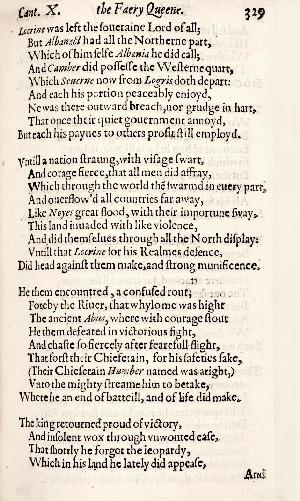 Cant. X. the Faery Queene. 329
Locrine was left the soueraine Lord of all;
But Albanact had all the Northerne part,
Which of himselfe Albania he did call;
And Camber did possesse the Westerne quart,
Which Seuerne now from Logris doth depart:
And each his portion peaceably enioyd,
Ne was there outward breach, nor grudge in hart,
That once their quiet gouernment annoyd,
But each his paynes to others profit still employd.
Vntill a nation straung, with visage swart,
And corage fierce, that all men did affray,
Which through the world thē swarmd in euery part,
And ouerflow'd all countries far away,
Like Noyes great flood, with their importune sway,
This land inuaded with like violence,
And did themselues through all the North display:
Vntill that Locrine for his Realmes defence,
Did head against them make, and strong munificence.
He them encountred, a confused rout,
Foreby the Riuer, that whylome was hight
The ancient Abus, where with courage stout
He them defeated in victorious fight,
And chaste so fiercely after fearefull flight,
That forst their Chiefetain, for his safeties sake,
(Their Chiefetain Humber named was aright,)
Vnto the mighty streame him to betake,
Where he an end of batteill, and of life did make.
The king returned proud of victory,
And insolent wox through vnwonted ease,
That shortly he forgot the ieopardy,
Which in his land he lately did appease,
And